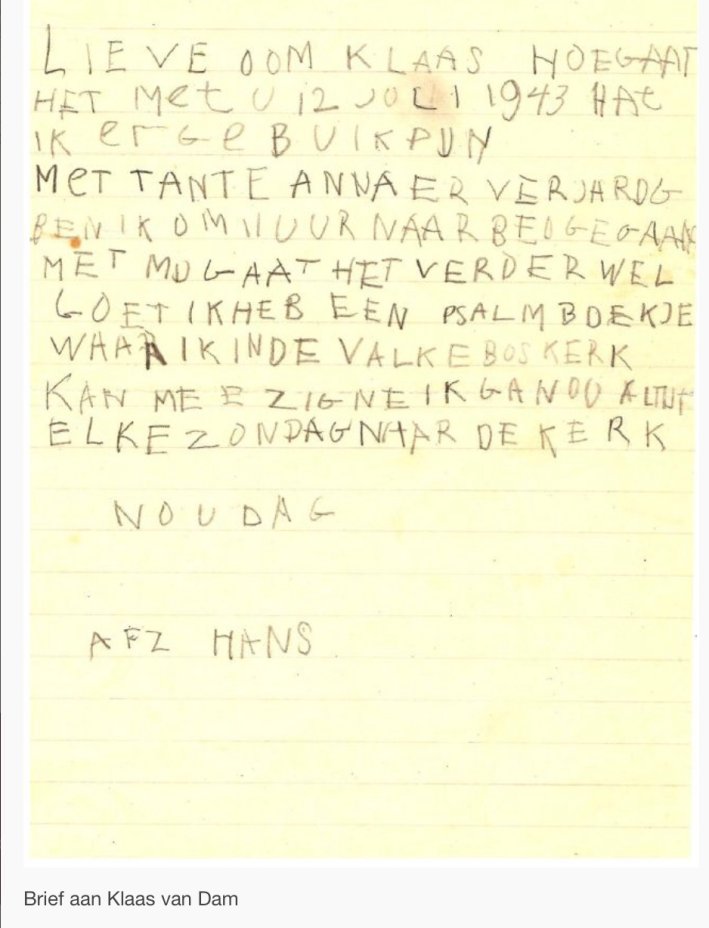 LIEVE OOM KLAAS HOEGAAT
HET Met U 12 JULI 1943 HAt
IK erGe BUIKPIJN
MeT TANTE ANNAER VERJARDG
BEN IK OM 11 UUR NAAR BEDGEGAAN
MET MIJ GAAT HET VERDER WEL
GOET IKHEB EEN PSALMBOEKJE
WAAR IK INDE VALKEBOSKERK
KAN MEE ZIGNE IK GA NOU ALTIJT
ELKE ZONDAG NAAR DE KERK
NOU DAG
AFZ HANS
Brief aan Klaas van Dam